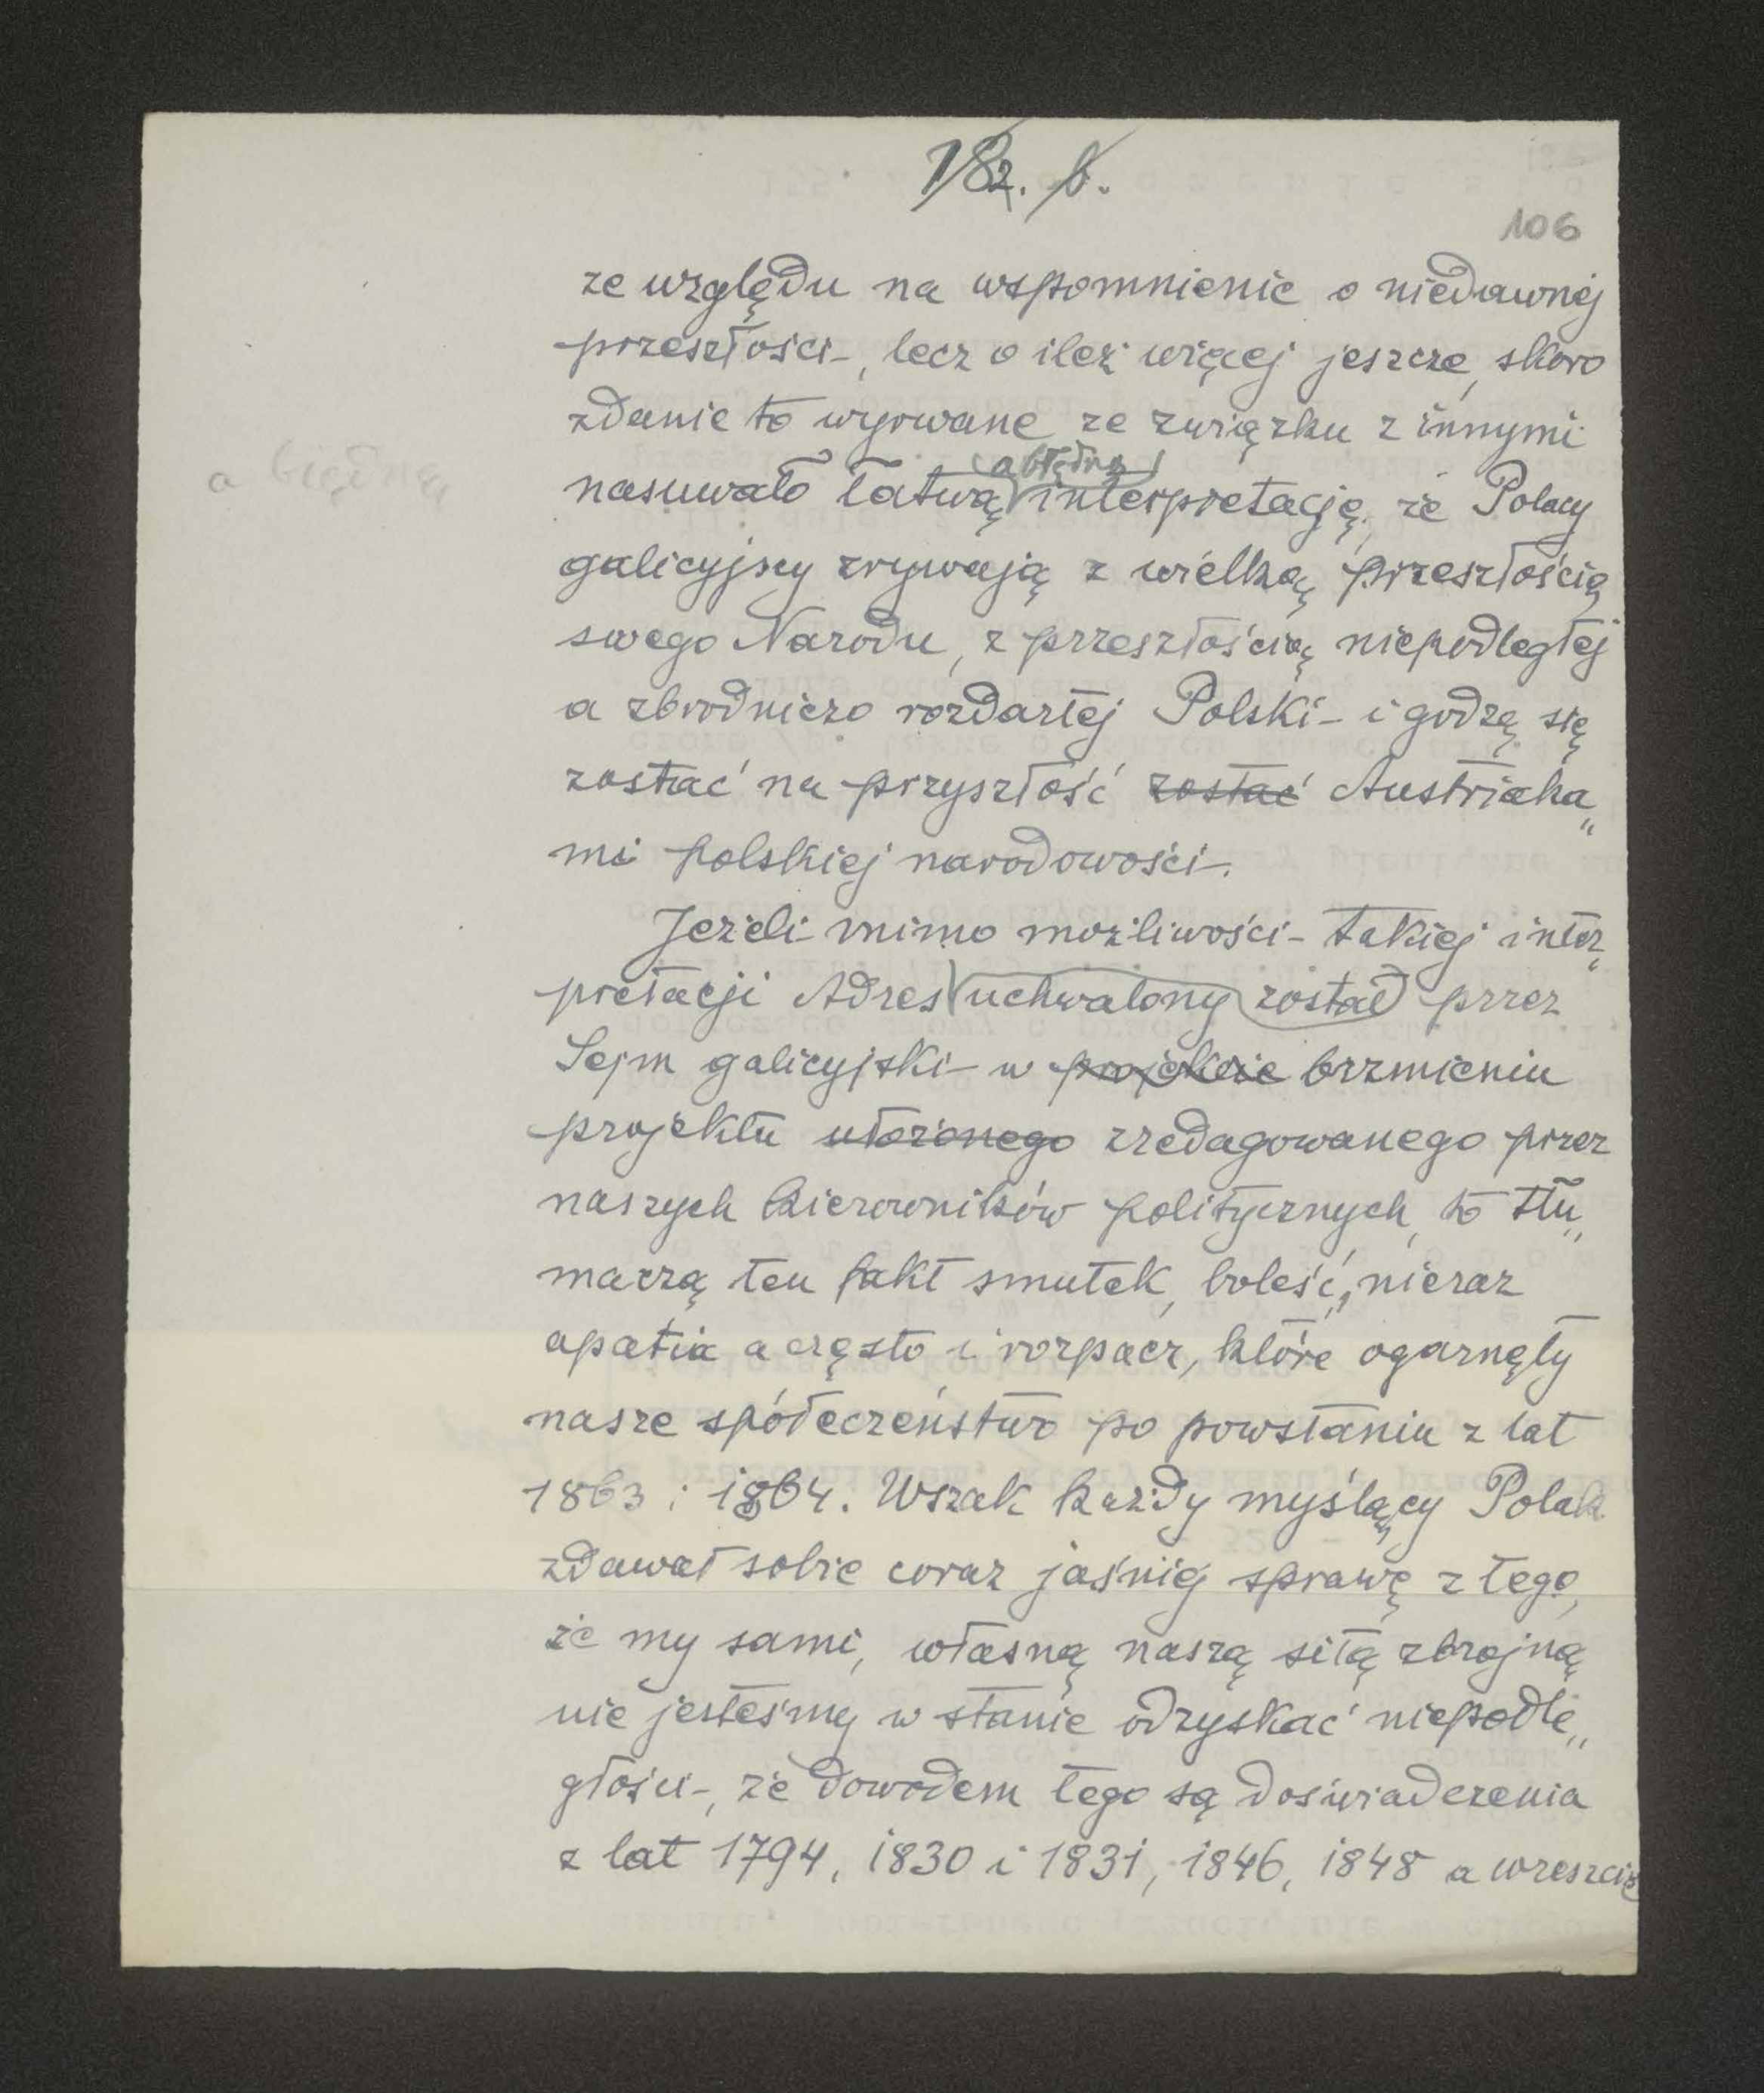 182. b.
106
ze względu na wspomnienie o niedawnej
przeszłości, lecz o ileż więcej jeszcze, skoro
zdanie to wyrwane ze związku z innymi
a błędną
(a błędną)
nasuwało łatwą interpretację, że Polacy
galicyjscy zrywają z wielką przeszłością
swego Narodu, z przeszłością niepodległej
a zbrodniczo rozdartej Polski i godzą się
zostać na przyszłość zostać Austriaka„
mi polskiej narodowości.
Jeżeli mimo możliwości takiej inter„
pretacji Adres uchwalony został przez
Sejm galicyjski w projekcie brzmieniu
projektu ułożonego zredagowanego przez
naszych kierowników politycznych, to tłu„
maczą ten fakt smutek, boleść, nieraz
apatia a często i rozpacz, które ogarnęły
nasze społeczeństwo po powstaniu z lat
1863 i 1864. Wszak każdy myślący Polak
zdawał sobie coraz jaśniej sprawę z tego,
że my sami, własną naszą siłą zbrojną
nie jesteśmy w stanie odzyskać niepodle„
głości, że dowodem tego są doświadczenia
z lat 1794, 1830 i 1831, 1846, 1848 a wreszcie